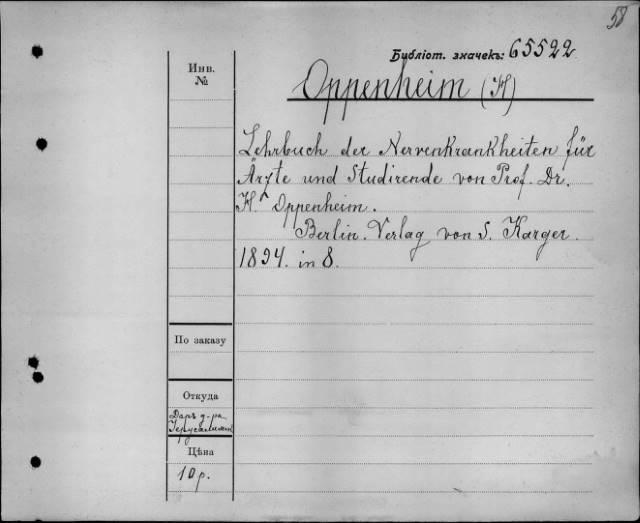 58
Библіот. значекъ: 65522
Инв.
№
Oppenheim (H)
Lehrbuch der Nervenkrankheiten für
Ärzte und Studirende von Prof. Dr.
H. Oppenheim.
Berlin. Verlag von S. Karger.
1894. in 8.
По заказу
Откуда
Даръ д-ра
Іерусалимск
Цѣна
10 р.